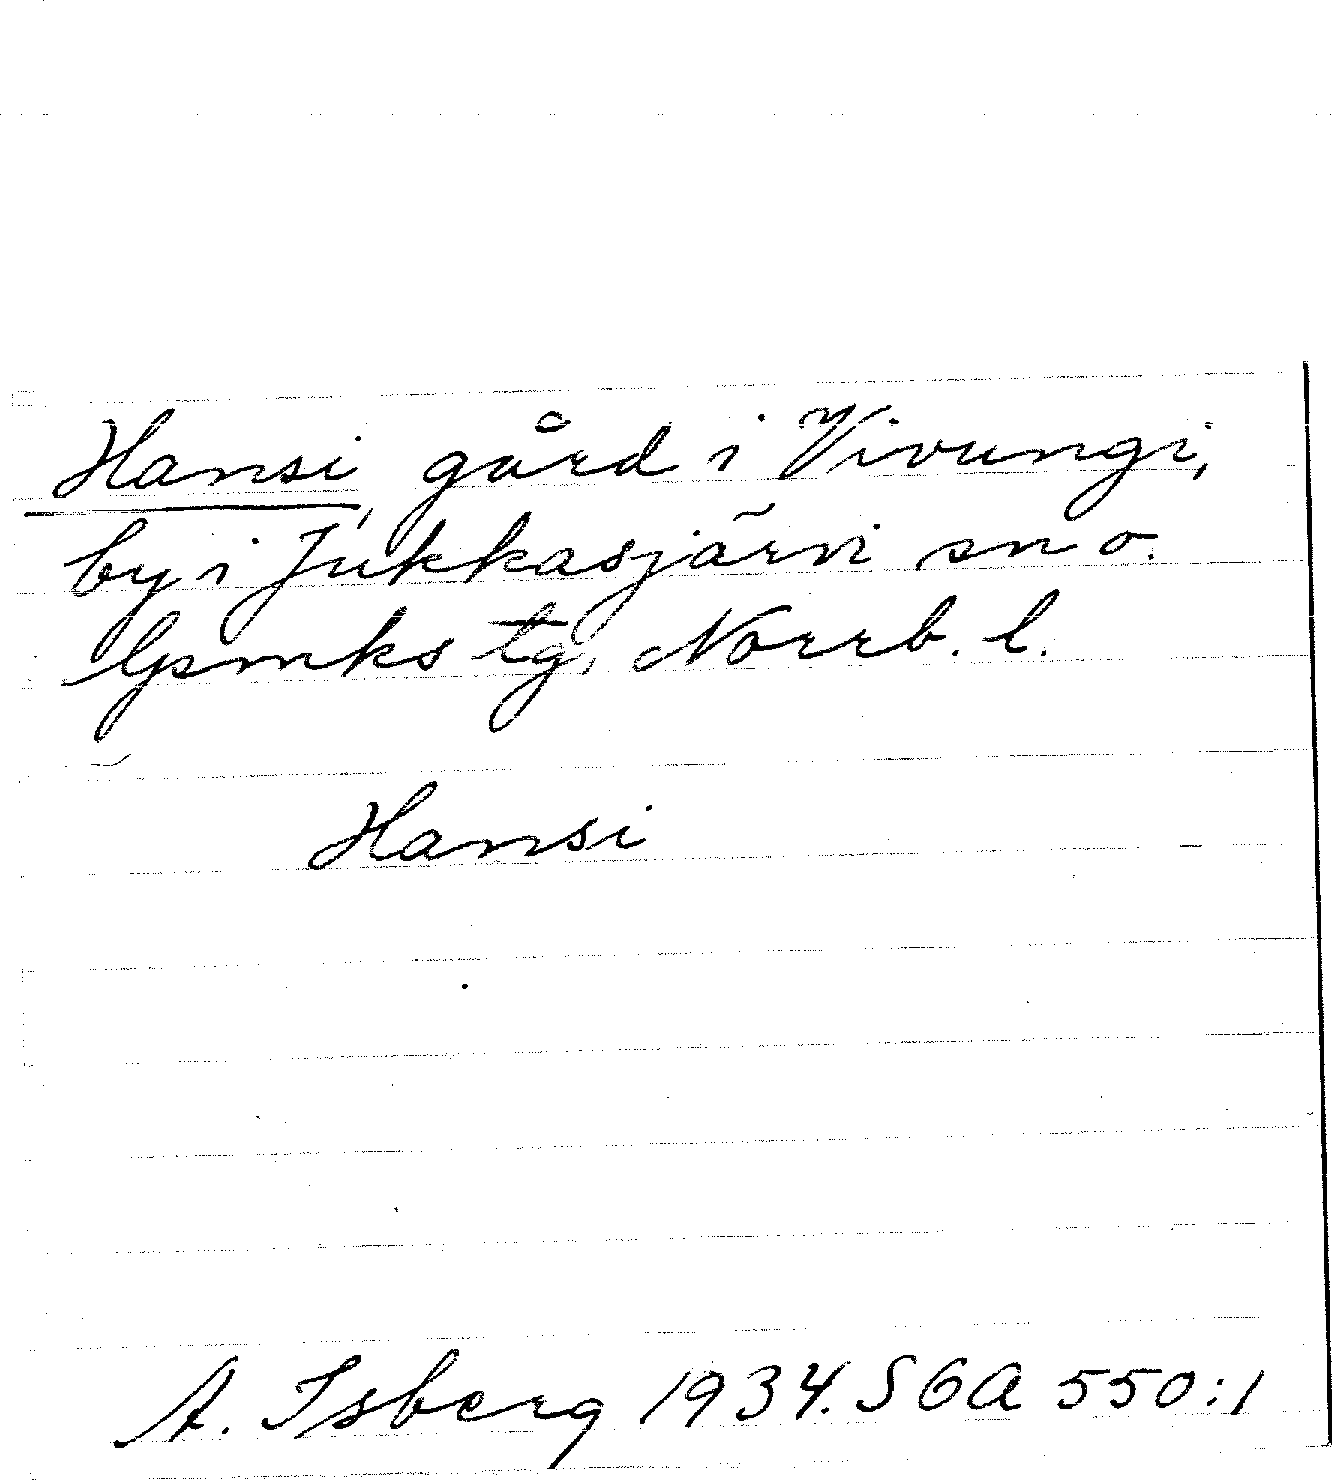 Hansi, gård i Vivungi,
by i Jukkasjärvi sn o.
lpsmks tg, Norrb. l.
Hansi
A. Isberg 1934. SOA 550:1